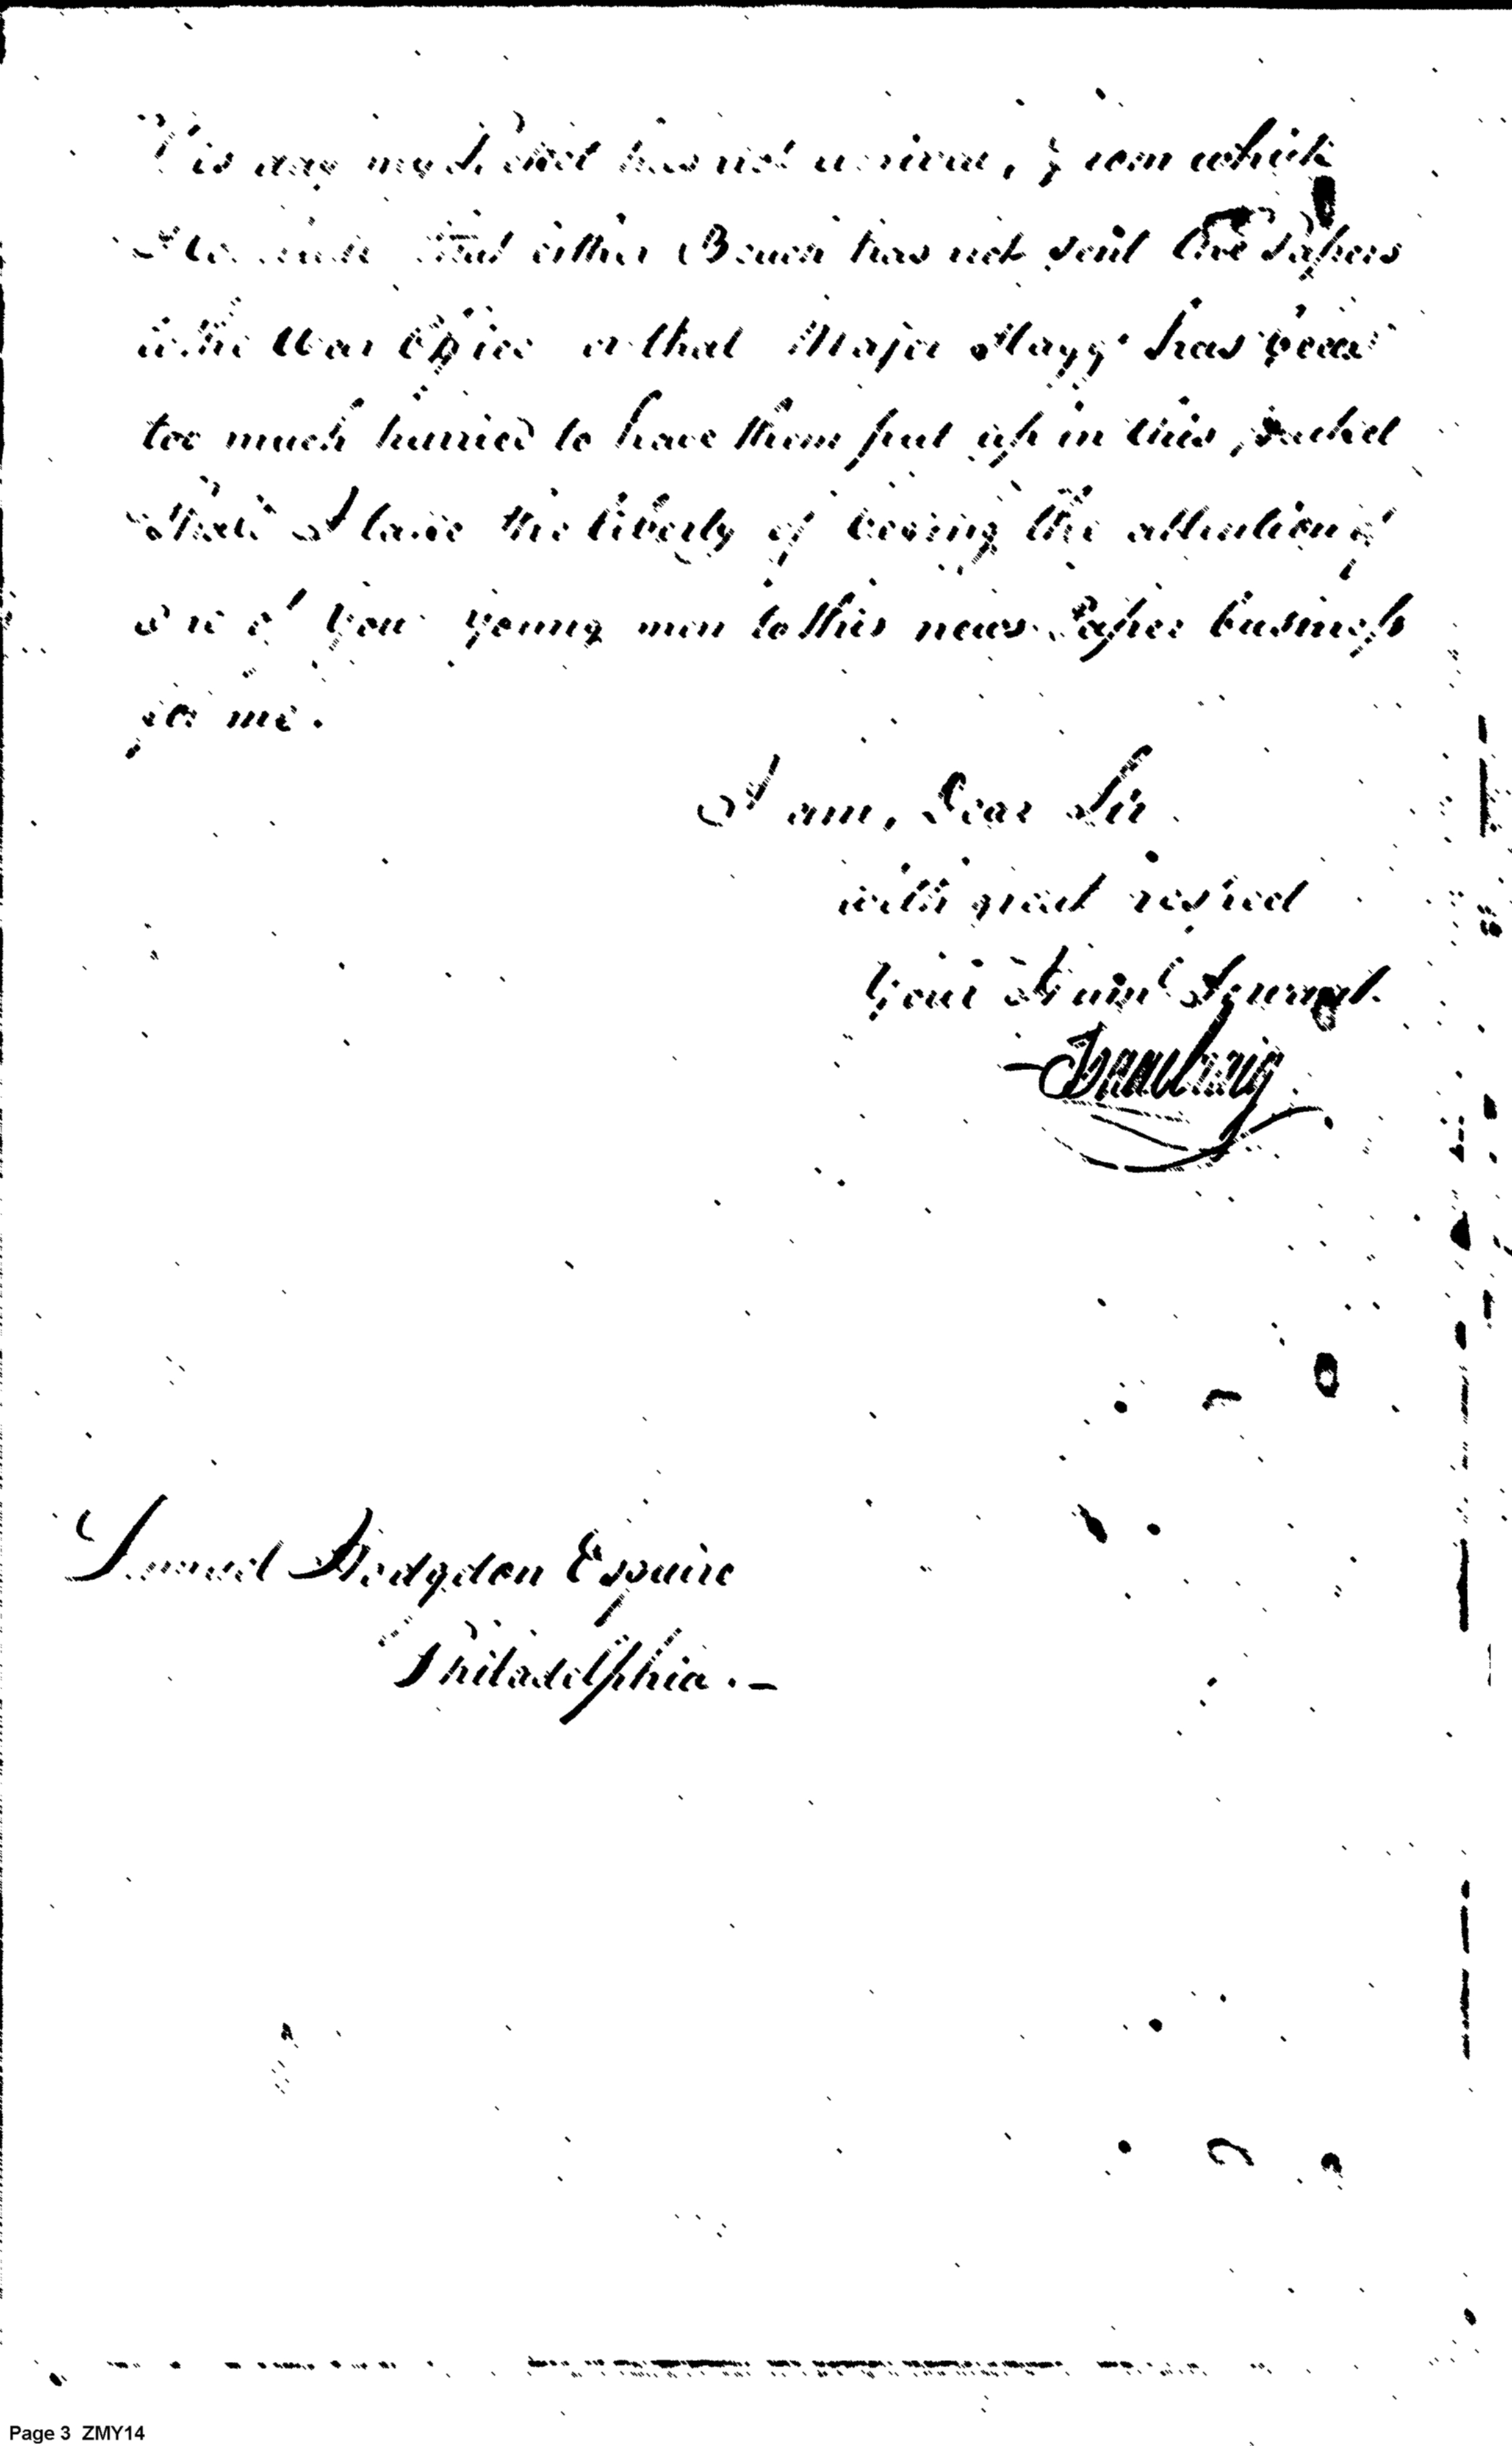 This day my Packet has not arrived, from which
I conclude that either Brown has not sent the Papers
to the War Office or that Major Stagg has been
too much hurried to have them put up in this packet
Shall I take the liberty of the attention of
one of your young men to this news-Paper business
for me.
I am, Dear Sir
with great respect
Your Humbl Servant.
Isaac Craig
Samuel Hodgdon Esquire
Philadelphia. –
Page 3 ZMY14